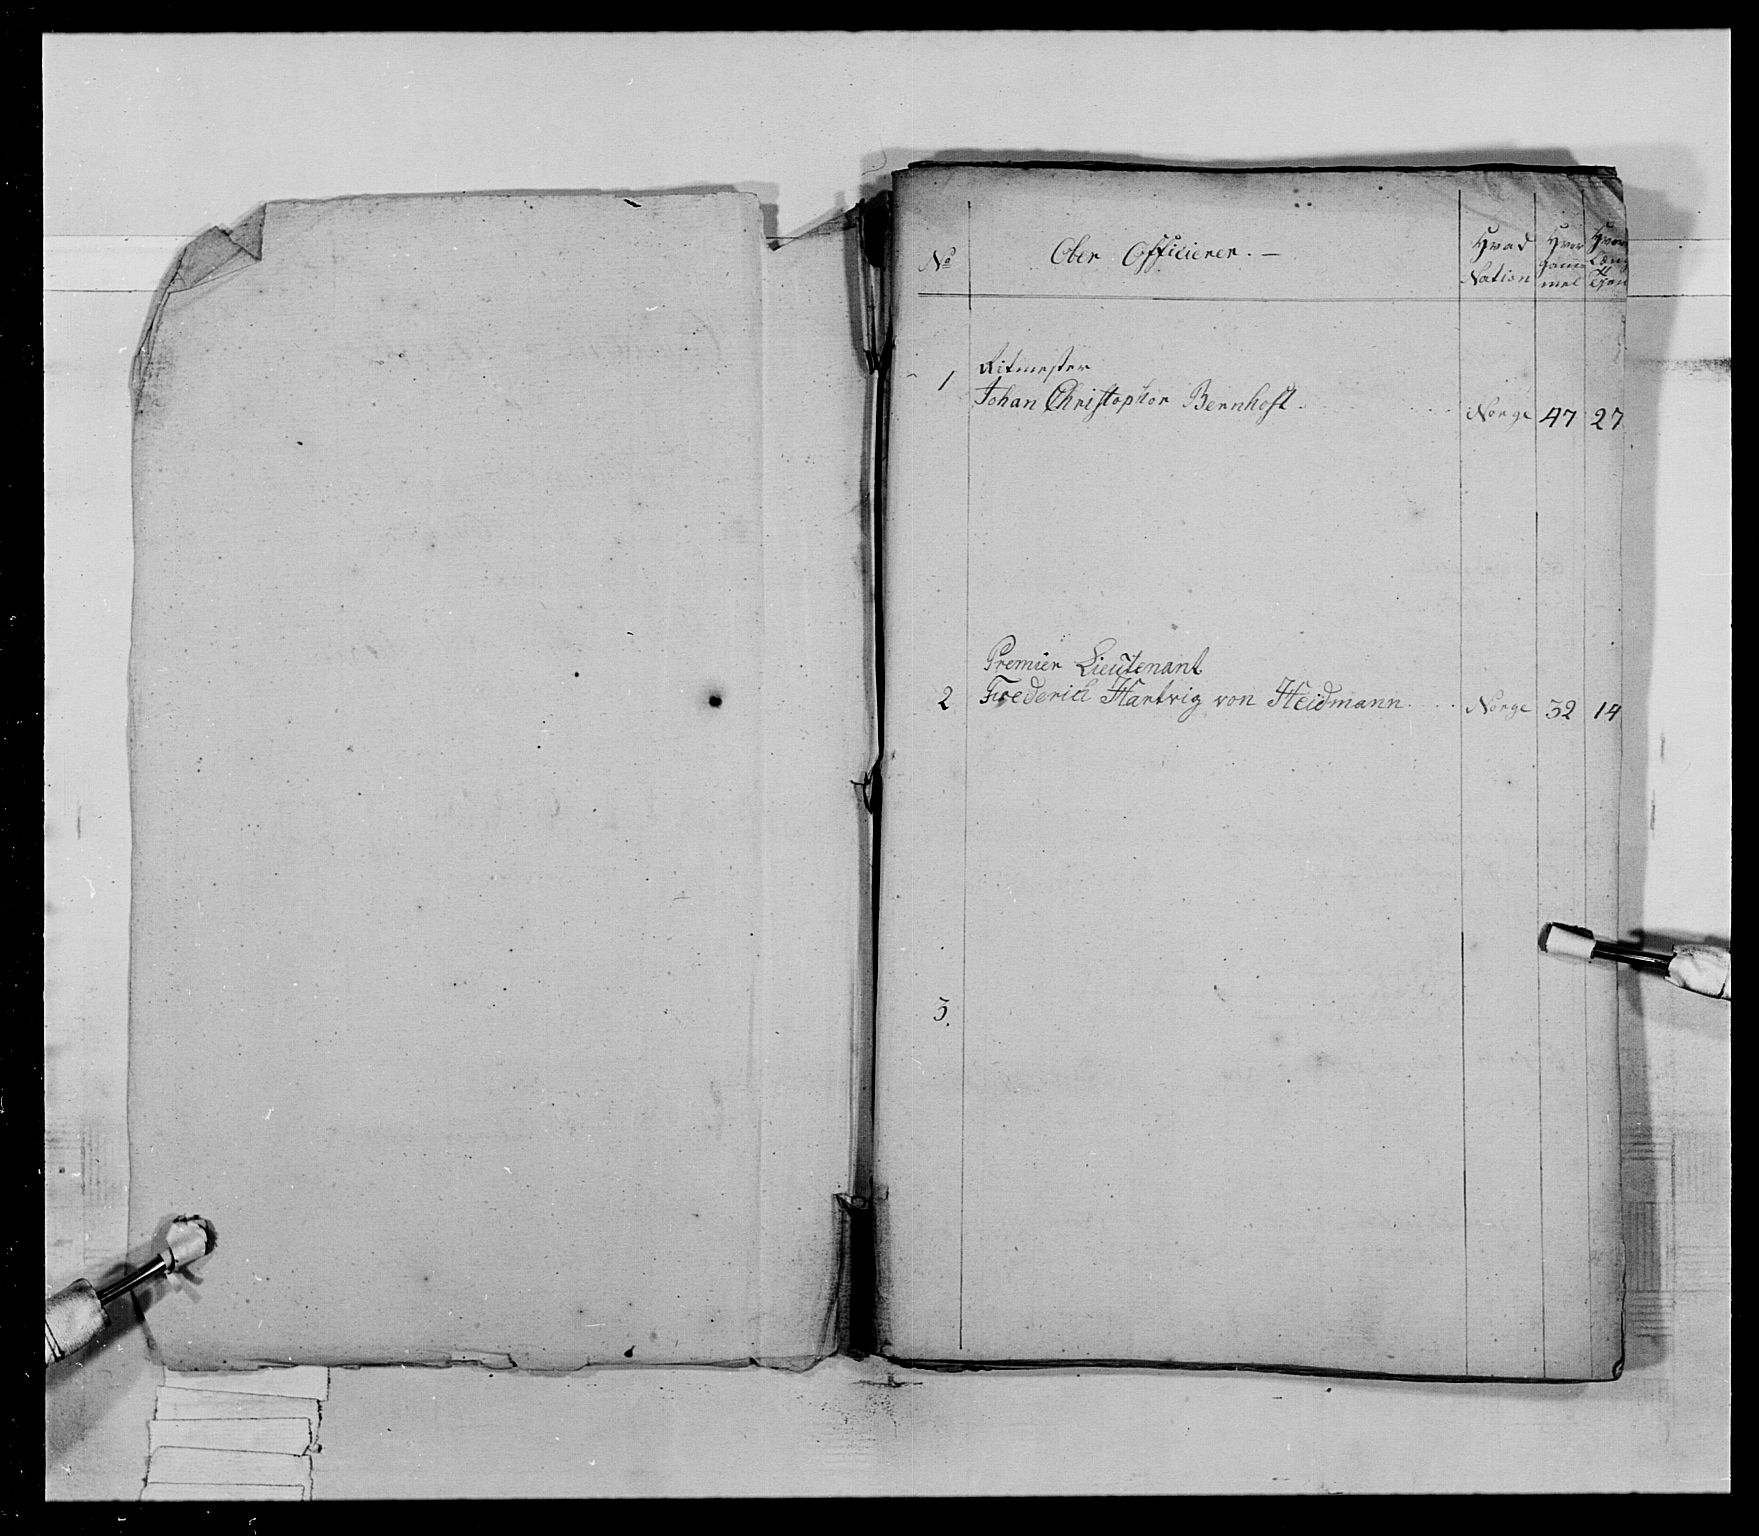 No Ober Officierer. — Hvad Nation Hvor gam̄mel Hvor Læng
1 Ritmester
Johan Christophor Bernhoft. Norge 47 27
Premier Lieutenant
2 Frederich Hartvig von Heidmann. Norge 32 14
3.